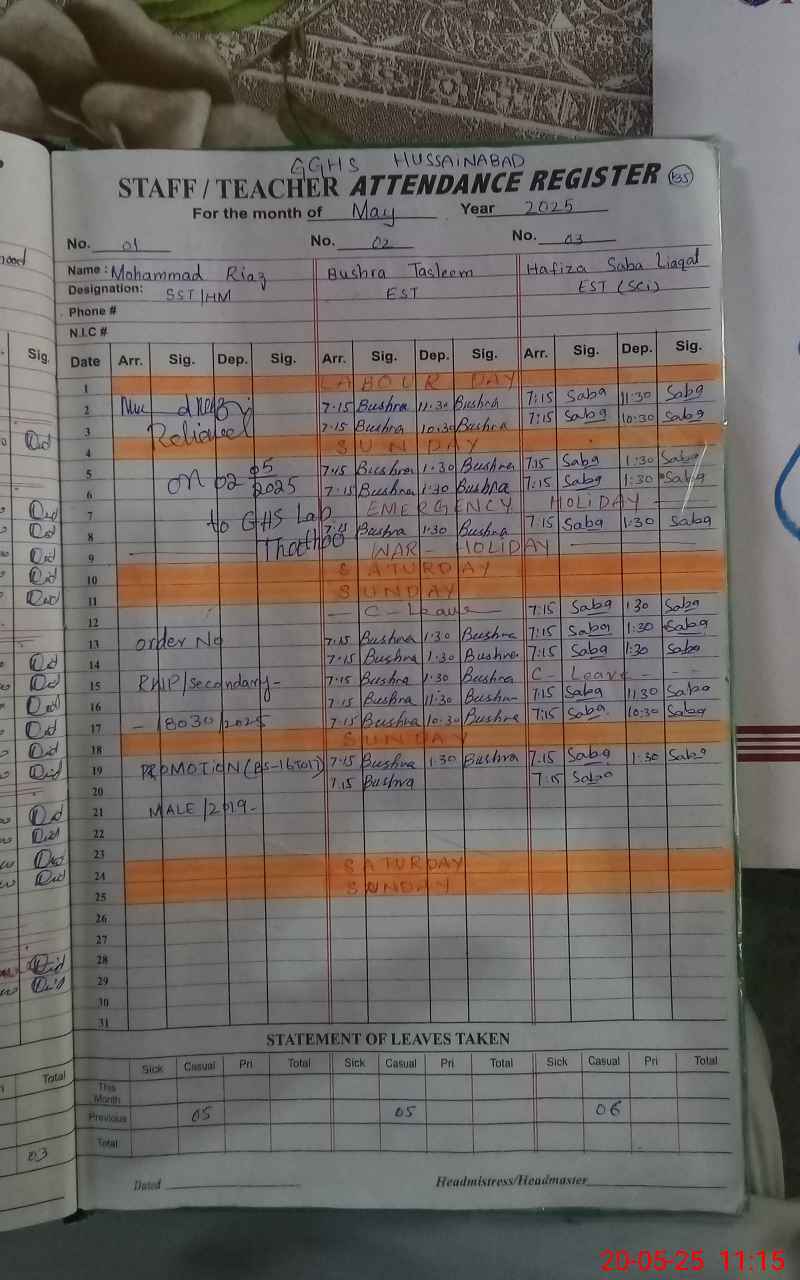 GGHS HUSSAINABAD
STAFF / TEACHER ATTENDANCE REGISTER 135
For the month of May Year 2025
No. 01 No. 02 No. 03
Name : Mohammad Riaz Bushra Tasleem Hafiza Saba Liaqat
Designation: SST/HM EST EST (SCI)
Phone #
N.I.C #
Date Arr. Sig. Dep. Sig. Arr. Sig. Dep. Sig. Arr. Sig. Dep. Sig.
1 LABOUR DAY
2 7.15 Bushra 11.30 Bushra 7:15 Saba 11:30 Saba
3 Relieved 7.15 Bushra 10.30 Bushra 7:15 Saba 10:30 Saba
4 SUNDAY
5 on 02 05 2025 7.15 Bushra 1.30 Bushra 7.15 Saba 1:30 Saba
6 7.15 Bushra 1.30 Bushra 7:15 Saba 1:30 Saba
7 to GHS Lab EMERGENCY HOLIDAY
8 7.15 Bushra 1.30 Bushra 7:15 Saba 1:30 Saba
9 WAR - HOLIDAY
10 SATURDAY
11 SUNDAY
12 - C - Leave - 7:15 Saba 1:30 Saba
13 order No 7.15 Bushra 1.30 Bushra 7:15 Saba 1:30 Saba
14 7.15 Bushra 1.30 Bushra 7:15 Saba 1:30 Saba
15 RWP/secondary- 7.15 Bushra 1.30 Bushra C - Leave - -
16 7.15 Bushra 11.30 Bushra 7:15 Saba 11:30 Saba
17 - 18030/2025 7.15 Bushra 10.30 Bushra 7:15 Saba 10:30 Saba
18 SUNDAY
19 PROMOTION (BS-16TO17) 7.15 Bushra 1.30 Bushra 7.15 Saba 1:30 Saba
20 7.15 Bushra 7.15 Saba
21 MALE/2019-
22
23
24 SATURDAY
25 SUNDAY
26
27
28
29
30
31
STATEMENT OF LEAVES TAKEN
Sick Casual Pri Total Sick Casual Pri Total Sick Casual Pri Total
This Month
Previous 05 05 06
Total
Dated Headmistress/Headmaster
Sig.
Total
03
20-05-25 11:15